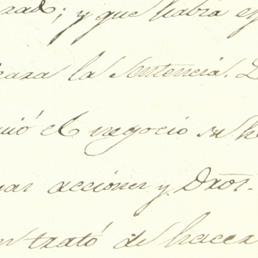 rad; y que habia ex
cara la Sentencia. D
uió el negocio su h
uas acciones y Dros.
n trató de hacer